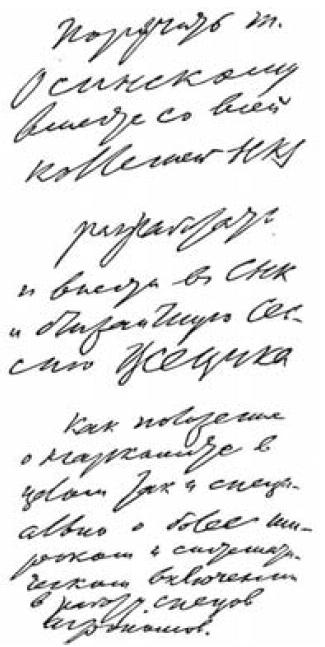 Поручить т.
Осинскому
вместе со всей
коллегией НКЗ
разработать
и внести в СНК
и ближайшую сес-
сию ВЦИКа
Как положение
о наркомземе в
целом так и специ-
ально о более ши-
роком и система-
ческом включении
в работу спецов
агрономов.